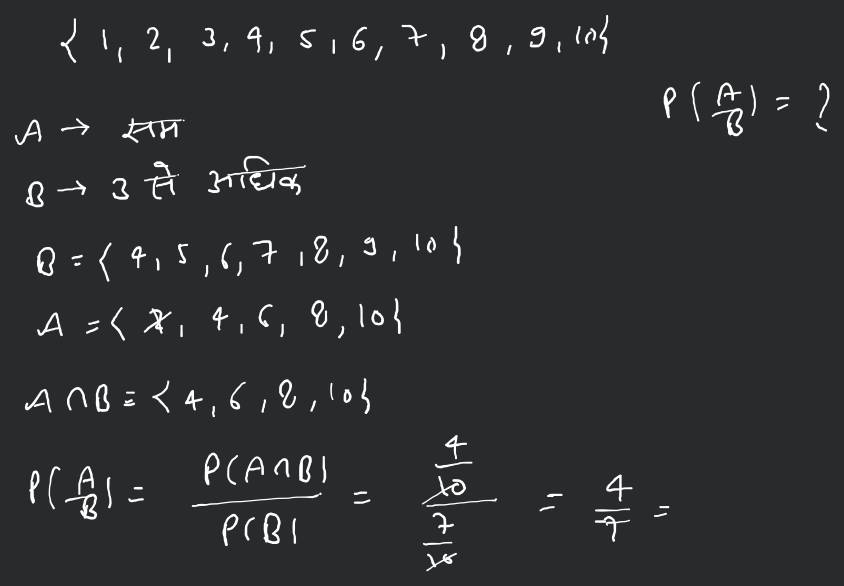 { 1, 2, 3, 4, 5, 6, 7, 8, 9, 10}
P(A/B) = ?
A → सम
B → 3 से अधिक
B = { 4, 5, 6, 7, 8, 9, 10 }
A = { 2, 4, 6, 8, 10}
A ∩ B = { 4, 6, 8, 10}
P(A/B) = P(A∩B) / P(B) = (4/10) / (7/10) = 4/7 =